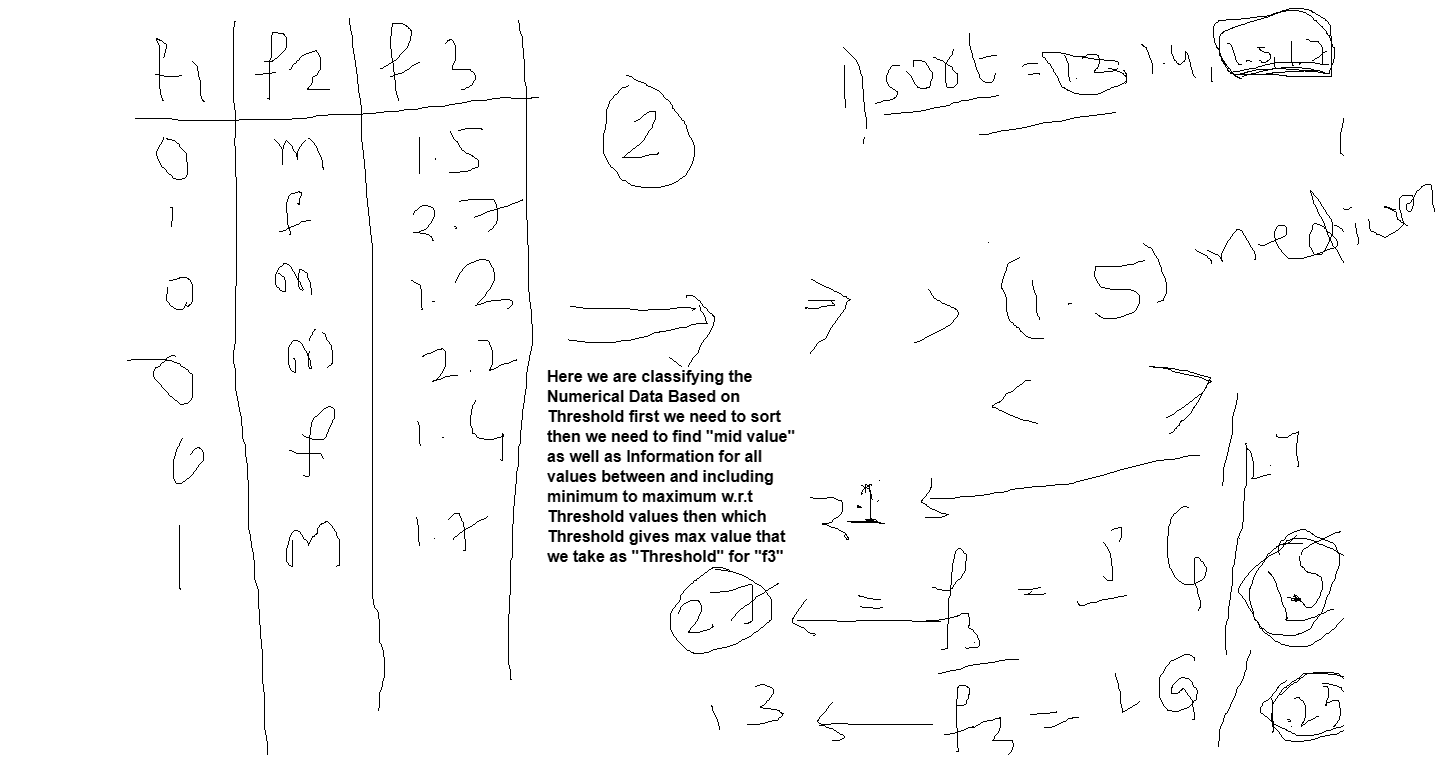 f1 f2 f3
0 m 1.5
1 f 2.7
0 m 1.2
0 m 2.2
0 f 1.4
1 m 1.7
2
1) sort = 1.2 1.4, 1.5, 1.7
=> > (1.5) medium
< >
Here we are classifying the
Numerical Data Based on
Threshold first we need to sort
then we need to find "mid value"
as well as Information for all
values between and including
minimum to maximum w.r.t
Threshold values then which
Threshold gives max value that
we take as "Threshold" for "f3"
21
27 = f3 = IG / 1.5
13 f3 = IG /